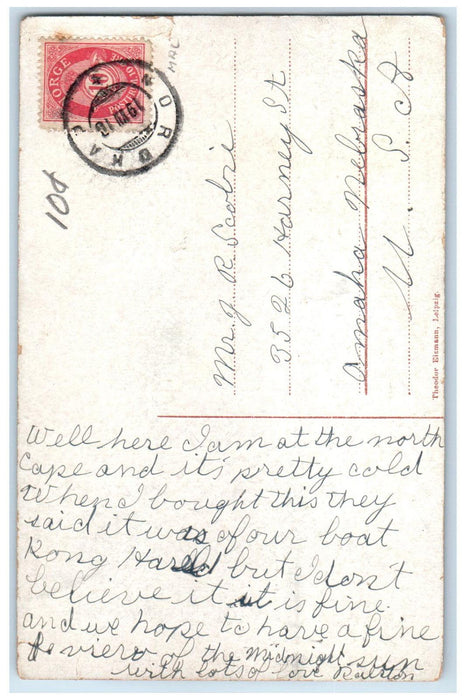 NORGE
10
POSTFRIM
NORDKAP
19 VII 10
MAC
10¢
Mr J R Scobie
3526 Harney St
Amaha Nebraska
U. S. A
Theodor Eismann, Leipzig.
Well here I am at the north
cape and its pretty cold
When I bought this they
said it was of our boat
Kong Harald but I don't
believe it it is fine
and we hope to have a fine
view of the midnight sun
with lots of love Ralston